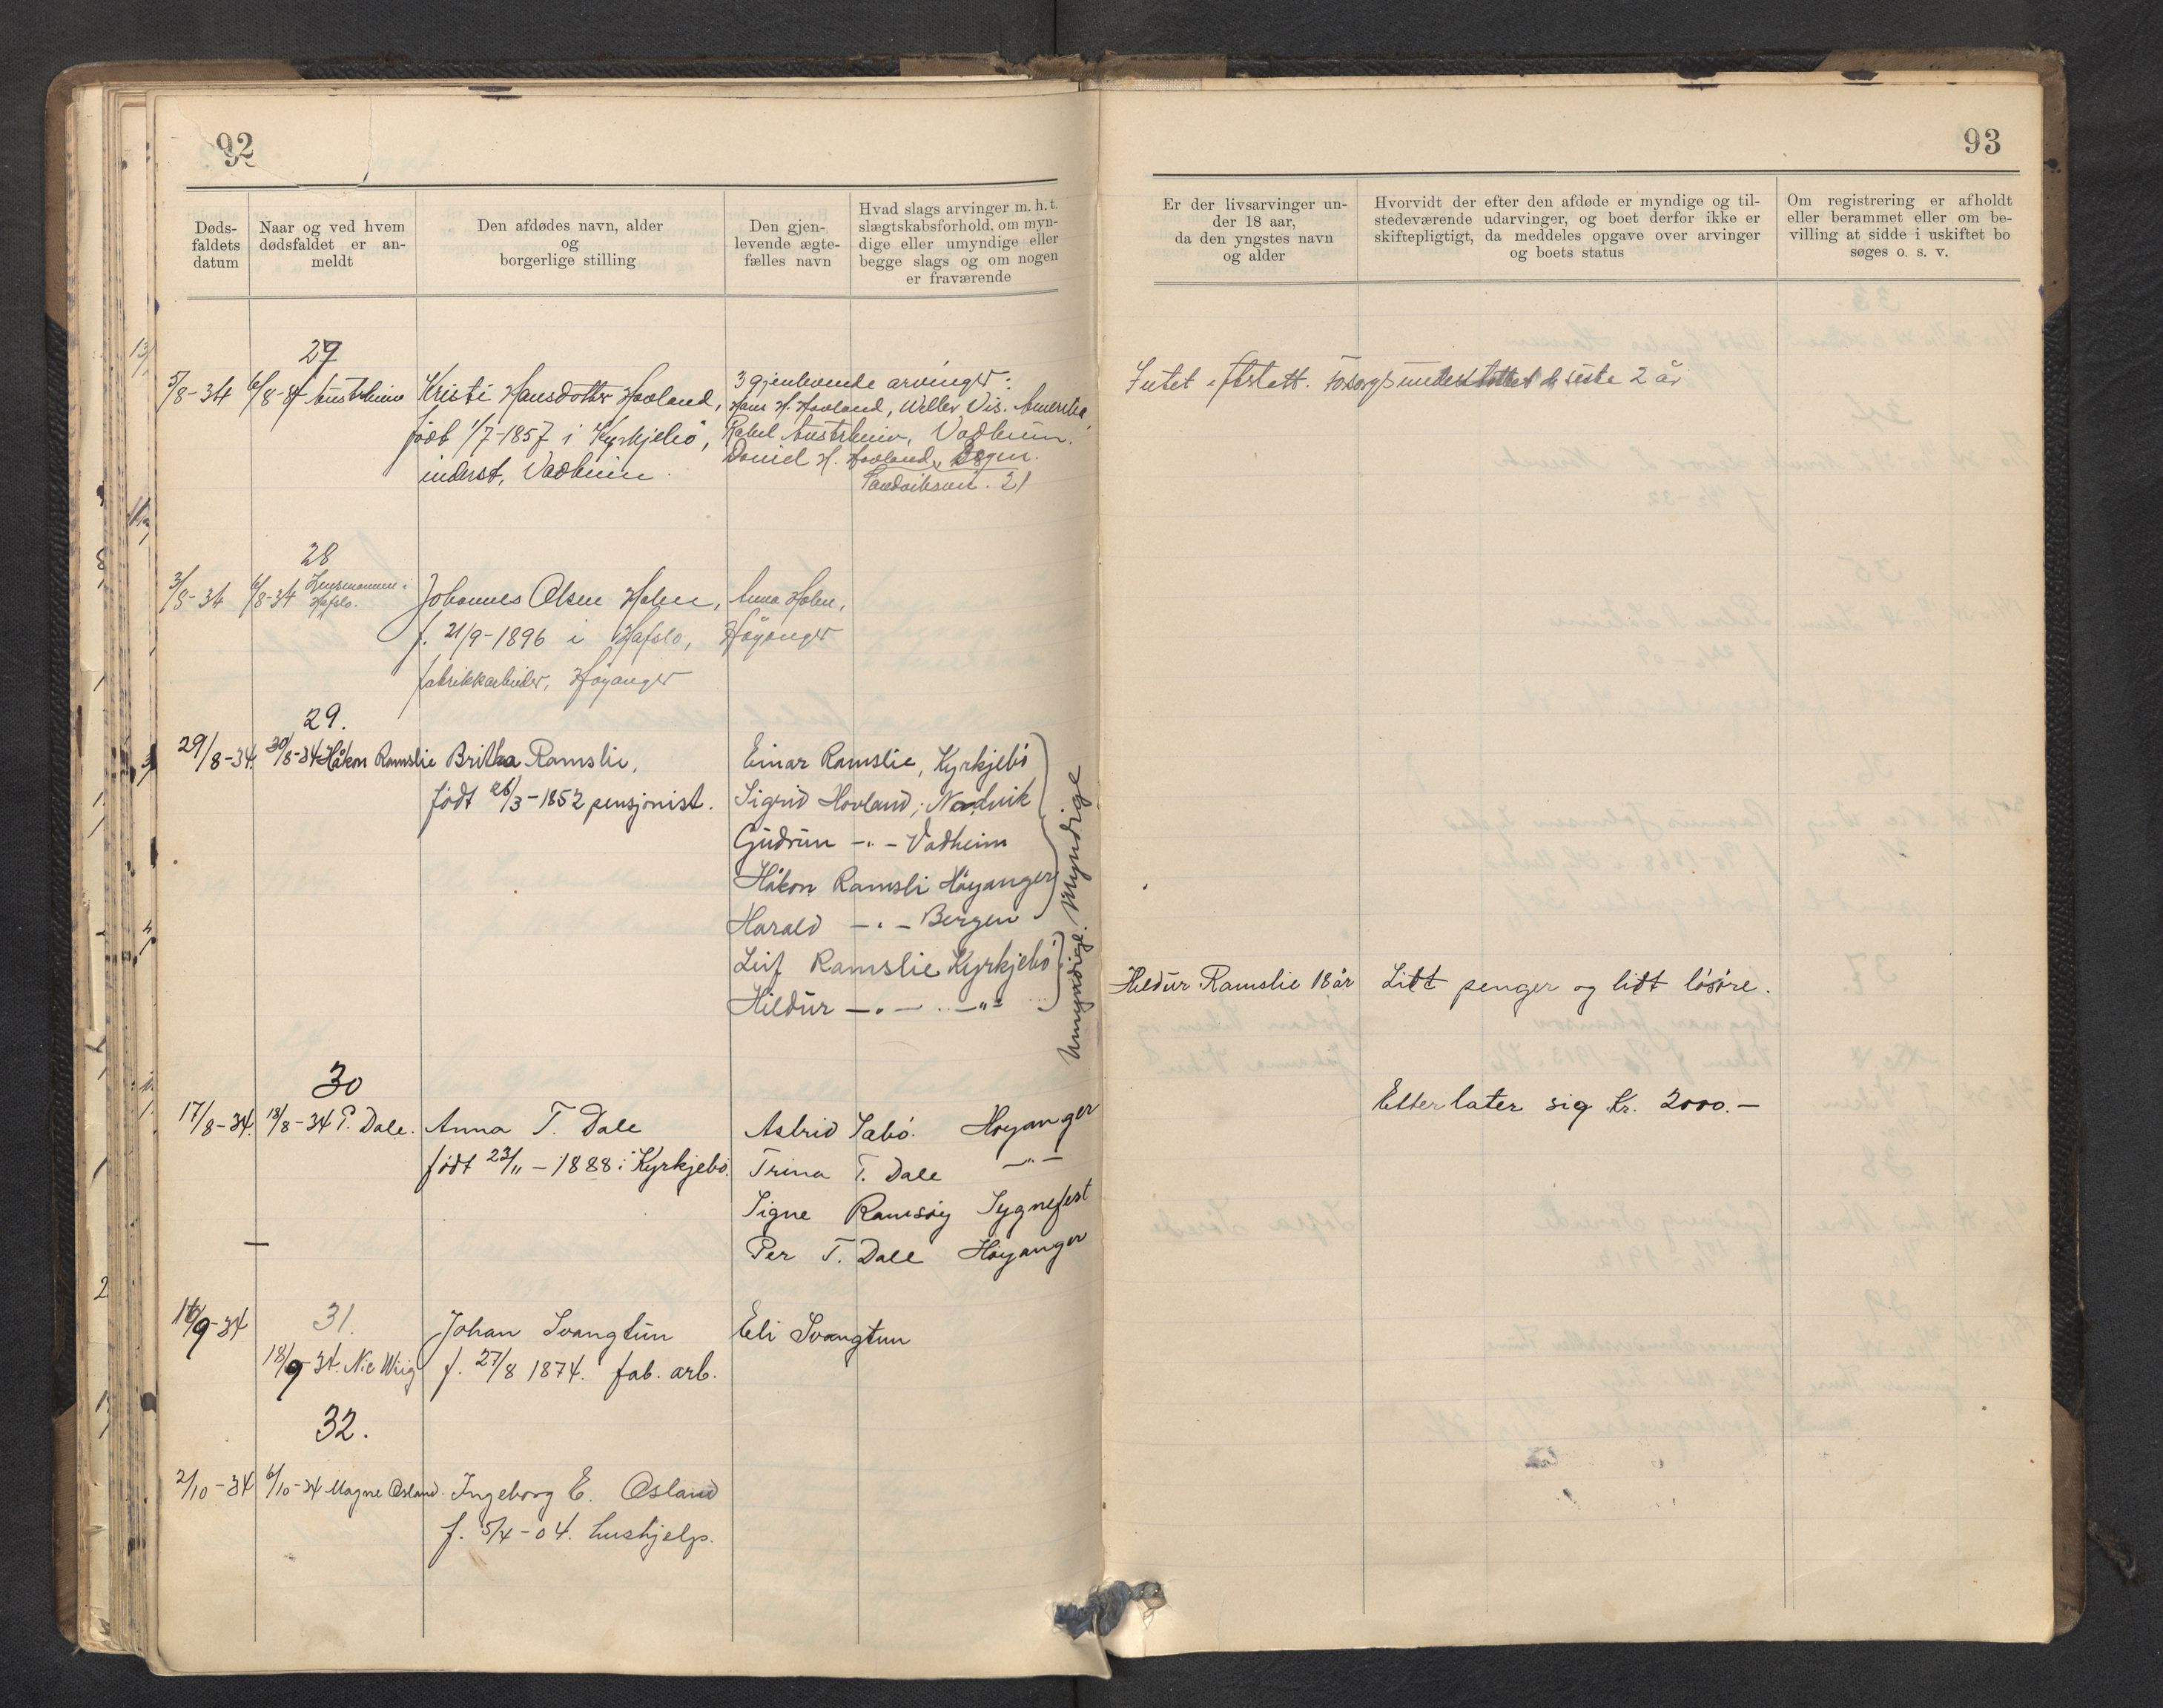 92
Døds-
faldets
datum
Naar og ved hvem
dødsfaldet er an-
meldt
Den afdødes navn, alder
og
borgerlige stilling
Den gjen-
levende ægte-
fælles navn
Hvad slags arvinger m. h. t.
slægtskabsforhold, om myn-
dige eller umyndige eller
begge slags og om nogen
er fraværende
27
5/8-34 6/8-34 Austrheim Kristi Hansdotter Hovland, 3 gjenlevende arvinger:
Hans H. Hovland, Weller Vis. Amerika,
født 1/7-1857 i Kyrkjebö, Rakel Austrheim, Vadheim.
inderst, Vadheim. Daniel H. Hovland, Bergen.
Sandviksvei. 21
28
3/8-34 6/8-34 Lensmannen i
Hafslo.
Johannes Olsen Holen, Anna Holen,
f. 21/9-1896 i Hafslo, Høyanger
fabrikkarbeider, Høyanger
29.
29/8-34. 30/8-34 Håkon Ramslie Britha Ramsli, Einar Ramslie, Kyrkjebö
født 26/3-1852 pensjonist. Sigrid Hovland, Nordvik
Gudrun -"- Vadheim
Håkon Ramsli Höyanger
Harald -"- Bergen
Myndige
Leif Ramslie Kyrkjebö
Hildur -"- -"-
Umyndige.
30
17/8-34. 18/8-34 P. Dale. Anna T. Dale Astrid Sabö. Høyanger
født 23/11-1888 i Kyrkjebö. Trina T. Dale -"-
Signe Ramsöy Sygnefest
Per T. Dale Høyanger
31.
16/9-34 Johan Svangtun Eli Svangtun
18/9-34. Nic Wiig f. 27/8 1874. fab. arb.
32.
2/10-34 6/10-34 Magne Osland. Ingeborg E. Osland
f. 5/4-04. hushjelp.
93
Er der livsarvinger un-
der 18 aar,
da den yngstes navn
og alder
Hvorvidt der efter den afdøde er myndige og til-
stedeværende udarvinger, og boet derfor ikke er
skiftepligtigt, da meddeles opgave over arvinger
og boets status
Om registrering er afholdt
eller berammet eller om be-
villing at sidde i uskiftet bo
søges o. s. v.
Intet efterlatt. Forsorgsunderstöttet de siste 2 år
Hildur Ramslie 18 år Litt penger og litt lösöre.
Etterlater sig Kr. 2000.-